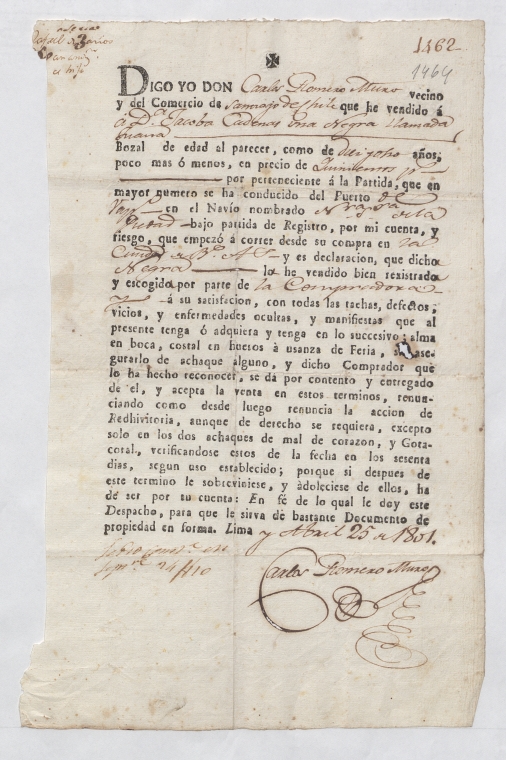 1462
1464
DIGO YO DON Carlos Romero Muro vecino
y del Comercio de Santiago de Chile que he vendido á
á D.ª Jacoba Cadenas una Negra llamada
Juana
Bozal de edad al parecer, como de años;
poco mas ó menos, en precio de Quinientos p.s
por perteneciente á la Partida, que en
mayor numero se ha conducido del Puerto de
Valp.o en el Navío nombrado de la
bajo partida de Registro, por mi cuenta, y
riesgo, que empezó á correr desde su compra en la
Ciudad B.s A.s y es declaracion, que dicha
Negra la he vendido bien rexistrada
y escogida por parte de la Compradora
á su satisfacion, con todas las tachas, defectos;
vicios, y enfermedades ocultas, y manifiestas que al
presente tenga ó adquiera y tenga en lo succesivo; alma
en boca, costal en huesos á usanza de Feria, ase-
gurarlo de achaque alguno, y dicho Comprador que
lo ha hecho reconocer, se dá por contento y entregado
de el, y acepta la venta en estos terminos, renun-
ciando como desde luego renuncia la accion de
Redhivitoria, aunque de derecho se requiera, excepto
solo en los dos achaques de mal de corazon, y Gota-
coral, verificandose estos de la fecha en los sesenta
dias, segun uso establecido; porque si despues de
este termino le sobreviniese, y adoleciese de ellos, ha
de ser por tu cuenta: En fé de lo qual le doy este
Despacho, para que le sirva de bastante Documento de
propiedad en forma. Lima y Abril 25 de 1801.
24
Carlos Romero Muro